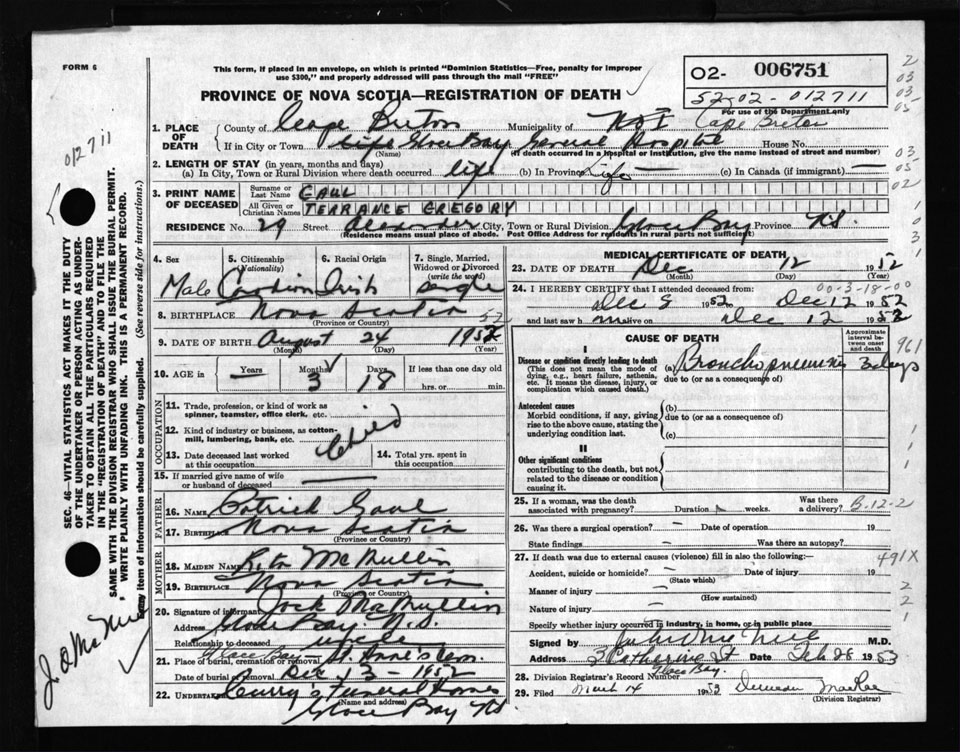 FORM 6
This form, if placed in an envelope, on which is printed "Dominion Statistics—Free, penalty for improper
use $300," and properly addressed will pass through the mail "FREE"
PROVINCE OF NOVA SCOTIA—REGISTRATION OF DEATH
02- 006751
52-02-012711
For use of the Department only
012711
1. PLACE OF DEATH County of Cape Breton Municipality of Cape Breton
If in City or Town Glace Bay General Hospital House No.
(Name) (If death occurred in a hospital or institution, give the name instead of street and number)
2. LENGTH OF STAY (in years, months and days)
(a) In City, Town or Rural Division where death occurred life (b) In Province Life (c) In Canada (if immigrant) —
3. PRINT NAME OF DECEASED Surname or Last Name GAUL
All Given or Christian Names TERRANCE GREGORY
RESIDENCE No. 29 Street Alexander City, Town or Rural Division Glace Bay Province NS
(Residence means usual place of abode. Post Office Address for residents in rural parts not sufficient)
4. Sex Male
5. Citizenship (Nationality) Canadian
6. Racial Origin Irish
7. Single, Married, Widowed or Divorced (write the word) Single
8. BIRTHPLACE Nova Scotia
(Province or Country)
9. DATE OF BIRTH August 24 1952
(Month) (Day) (Year)
10. AGE — Years 3 Months 18 Days If less than one day old
hrs. or min.
OCCUPATION
11. Trade, profession, or kind of work as spinner, teamster, office clerk, etc.
12. Kind of industry or business, as cotton-mill, lumbering, bank, etc. Child
13. Date deceased last worked at this occupation
14. Total yrs. spent in this occupation
15. If married give name of wife or husband of deceased
FATHER
16. NAME Patrick Gaul
17. BIRTHPLACE Nova Scotia
(Province or Country)
MOTHER
18. MAIDEN NAME Rita McMullin
19. BIRTHPLACE Nova Scotia
(Province or Country)
20. Signature of informant Jack MacMullin
Address Glace Bay N.S.
Relationship to deceased uncle
21. Place of burial, cremation or removal Glace Bay St. Anne's Cem.
Date of burial or removal Dec 13 1952
22. UNDERTAKER Curry's Funeral Homes
(Name and address)
Glace Bay NS
MEDICAL CERTIFICATE OF DEATH
23. DATE OF DEATH Dec 12 1952
(Month) (Day) (Year)
00-3-18-00
24. I HEREBY CERTIFY that I attended deceased from:
Dec 9 1952 to Dec 12 1952
and last saw him alive on Dec 12 1952
CAUSE OF DEATH
Approximate interval between onset and death
I
Disease or condition directly leading to death
(This does not mean the mode of dying, e.g., heart failure, asthenia, etc. It means the disease, injury, or complication which caused death.)
(a) Bronchopneumonia 3 days
due to (or as a consequence of)
Antecedent causes
Morbid conditions, if any, giving rise to the above cause, stating the underlying condition last.
(b)
due to (or as a consequence of)
(c)
II
Other significant conditions
contributing to the death, but not related to the disease or condition causing it.
25. If a woman, was the death associated with pregnancy? Duration weeks. Was there a delivery? B-12-2
26. Was there a surgical operation? — Date of operation 19
State findings Was there an autopsy?
27. If death was due to external causes (violence) fill in also the following:
491X
Accident, suicide or homicide? — Date of injury 19
(State which)
Manner of injury —
(How sustained)
Nature of injury —
Specify whether injury occurred in industry, in home, or in public place
Signed by M.D.
Address Catherine St Date Feb 28 1953
Glace Bay.
28. Division Registrar's Record Number
29. Filed March 14 1953 Duncan MacRae
(Division Registrar)
SEC. 46—VITAL STATISTICS ACT MAKES IT THE DUTY
OF THE UNDERTAKER OR PERSON ACTING AS UNDER-
TAKER TO OBTAIN ALL THE PARTICULARS REQUIRED
IN THE "REGISTRATION OF DEATH" AND TO FILE THE
SAME WITH THE DIVISION REGISTRAR WHO SHALL ISSUE THE BURIAL PERMIT.
WRITE PLAINLY WITH UNFADING INK. THIS IS A PERMANENT RECORD.
any item of information should be carefully supplied. (See reverse side for instructions.)